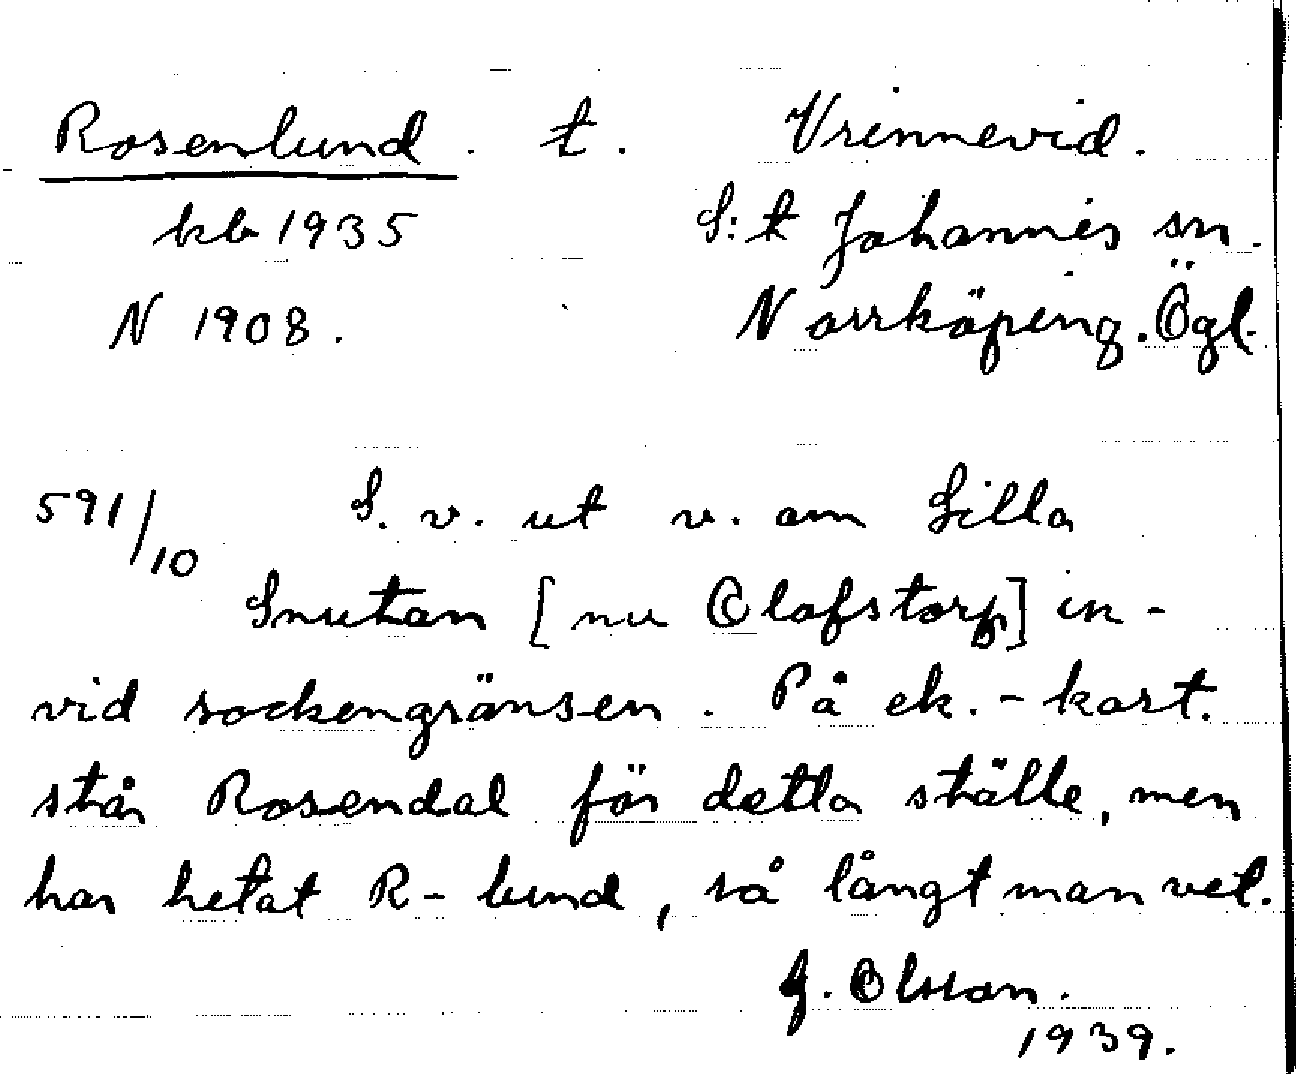 Rosenlund. t. Vrinnevid.
kb 1935 S:t Johannes sn.
N 1908. Norrköping. Ögl.
591/10 S. v. ut v. om Lilla
Snutan [nu Olofstorp] in-
vid sockengränsen. På ek.-kart.
står Rosendal för detta ställe, men
har hetat R-lund, så långt man vet.
G. Olsson.
1939.